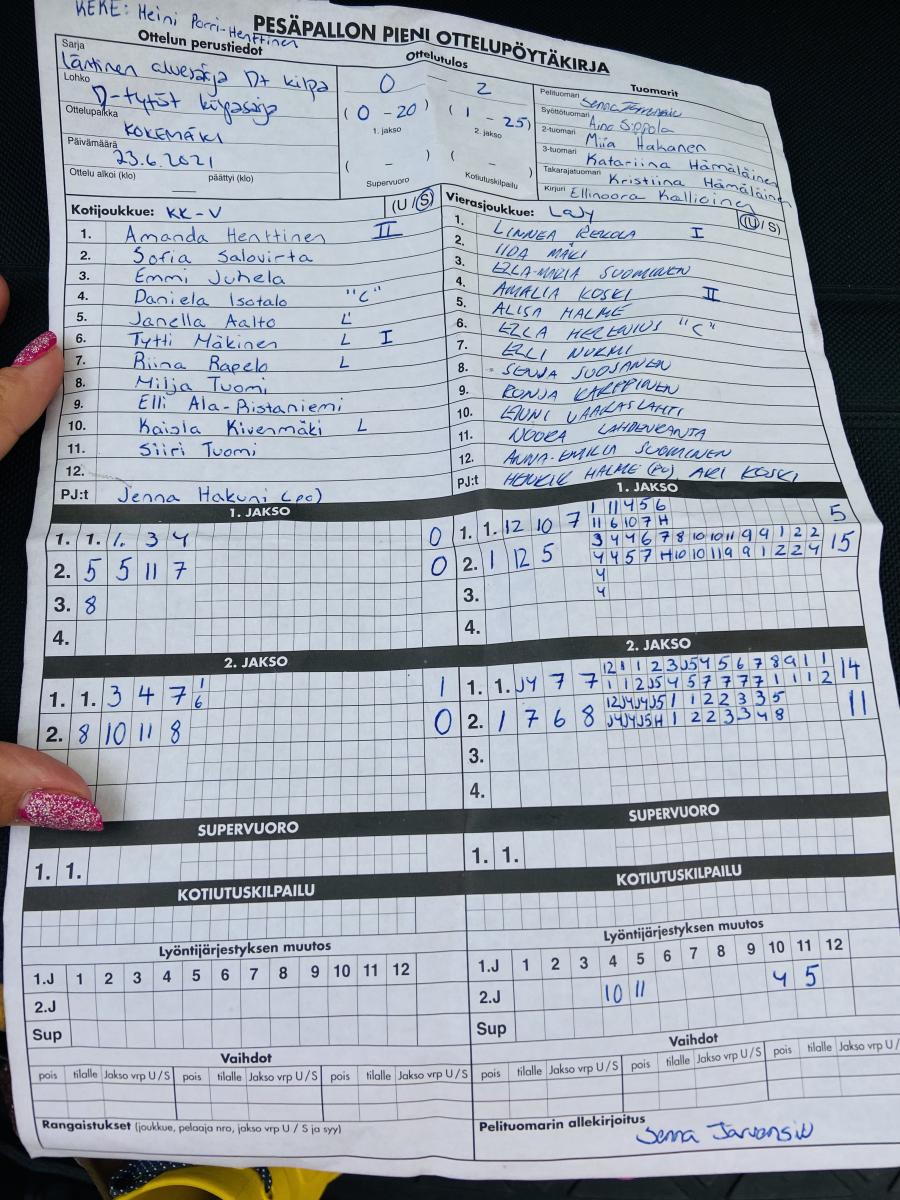 KEKE: Heini Porri-Henttinen
PESÄPALLON PIENI OTTELUPÖYTÄKIRJA
Ottelun perustiedot
Sarja
Läntinen aluesarja D+ kilpa
Lohko
D-tytöt kilpasarja
Ottelupaikka
KOKEMÄKI
Päivämäärä
23.6.2021
Ottelu alkoi (klo) — päättyi (klo)
Ottelutulos
0 2
( 0 - 20 ) ( 1 - 25 )
1. jakso 2. jakso
( - ) ( - )
Supervuoro Kotiutuskilpailu
Tuomarit
Pelituomari Senna
Syöttötuomari Aino Sippola
2-tuomari Miia Hakanen
3-tuomari Katariina Hämäläinen
Takarajatuomari Kristiina Hämäläinen
Kirjuri Ellinoora Kallioinen
Kotijoukkue: KK-V (U / S)
1. Amanda Henttinen II
2. Sofia Salovirta
3. Emmi Juhela
4. Daniela Isotalo "C"
5. Janella Aalto L
6. Tytti Mäkinen L I
7. Riina Rapelo L
8. Milja Tuomi
9. Elli Ala-Ristaniemi
10. Kaisla Kivenmäki L
11. Siiri Tuomi
12.
PJ:t Jenna Hakuni (pc)
Vierasjoukkue: LaJy (U / S)
1. LINNEA REKOLA I
2. IIDA MÄKI
3. ELLA-MARIA SUOMINEN
4. AMALIA KOSKI II
5. ALISA HALME
6. ELLA HELENIUS "C"
7. ELLI NURMI
8. SENJA SUOSANEN
9. RONJA KARPPINEN
10. VARRASLAHTI
11. NOORA LAHDENRANTA
12. ANNA-EMILIA SUOMINEN
PJ:t HENRIK HALME (PC) ARI KOSKI
1. JAKSO
1. 1. 1. 3 4 0
2. 5 5 11 7 0
3. 8
4.
1. JAKSO
1 11 4 5 6
1. 1. 12 10 7 11 6 10 7 H 5
3 4 4 6 7 8 10 10 11 9 9 1 2 2
2. 1 12 5 4 4 5 7 H 10 10 11 9 9 1 2 2 4 15
4
3. 4
4.
2. JAKSO
1. 1. 3 4 7 1 6 1
2. 8 10 11 8 0
2. JAKSO
12 1 1 2 3 J5 4 5 6 7 8 9 1 1
1. 1. J4 7 7 1 1 2 J5 4 5 7 7 7 7 1 1 1 2 14
12 J4 J4 J5 1 1 2 2 3 3 5
2. 1 7 6 8 J4 J4 J5 H 1 2 2 3 3 4 8 11
3.
4.
SUPERVUORO
1. 1.
SUPERVUORO
1. 1.
KOTIUTUSKILPAILU
KOTIUTUSKILPAILU
Lyöntijärjestyksen muutos
1.J 1 2 3 4 5 6 7 8 9 10 11 12
2.J
Sup
Lyöntijärjestyksen muutos
1.J 1 2 3 4 5 6 7 8 9 10 11 12
2.J 10 11 4 5
Sup
Vaihdot
pois tilalle Jakso vrp U / S pois tilalle Jakso vrp U / S pois tilalle Jakso vrp U / S
Vaihdot
pois tilalle Jakso vrp U / S pois tilalle Jakso vrp U / S pois tilalle Jakso vrp U /
Rangaistukset (joukkue, pelaaja nro, jakso vrp U / S ja syy)
Pelituomarin allekirjoitus